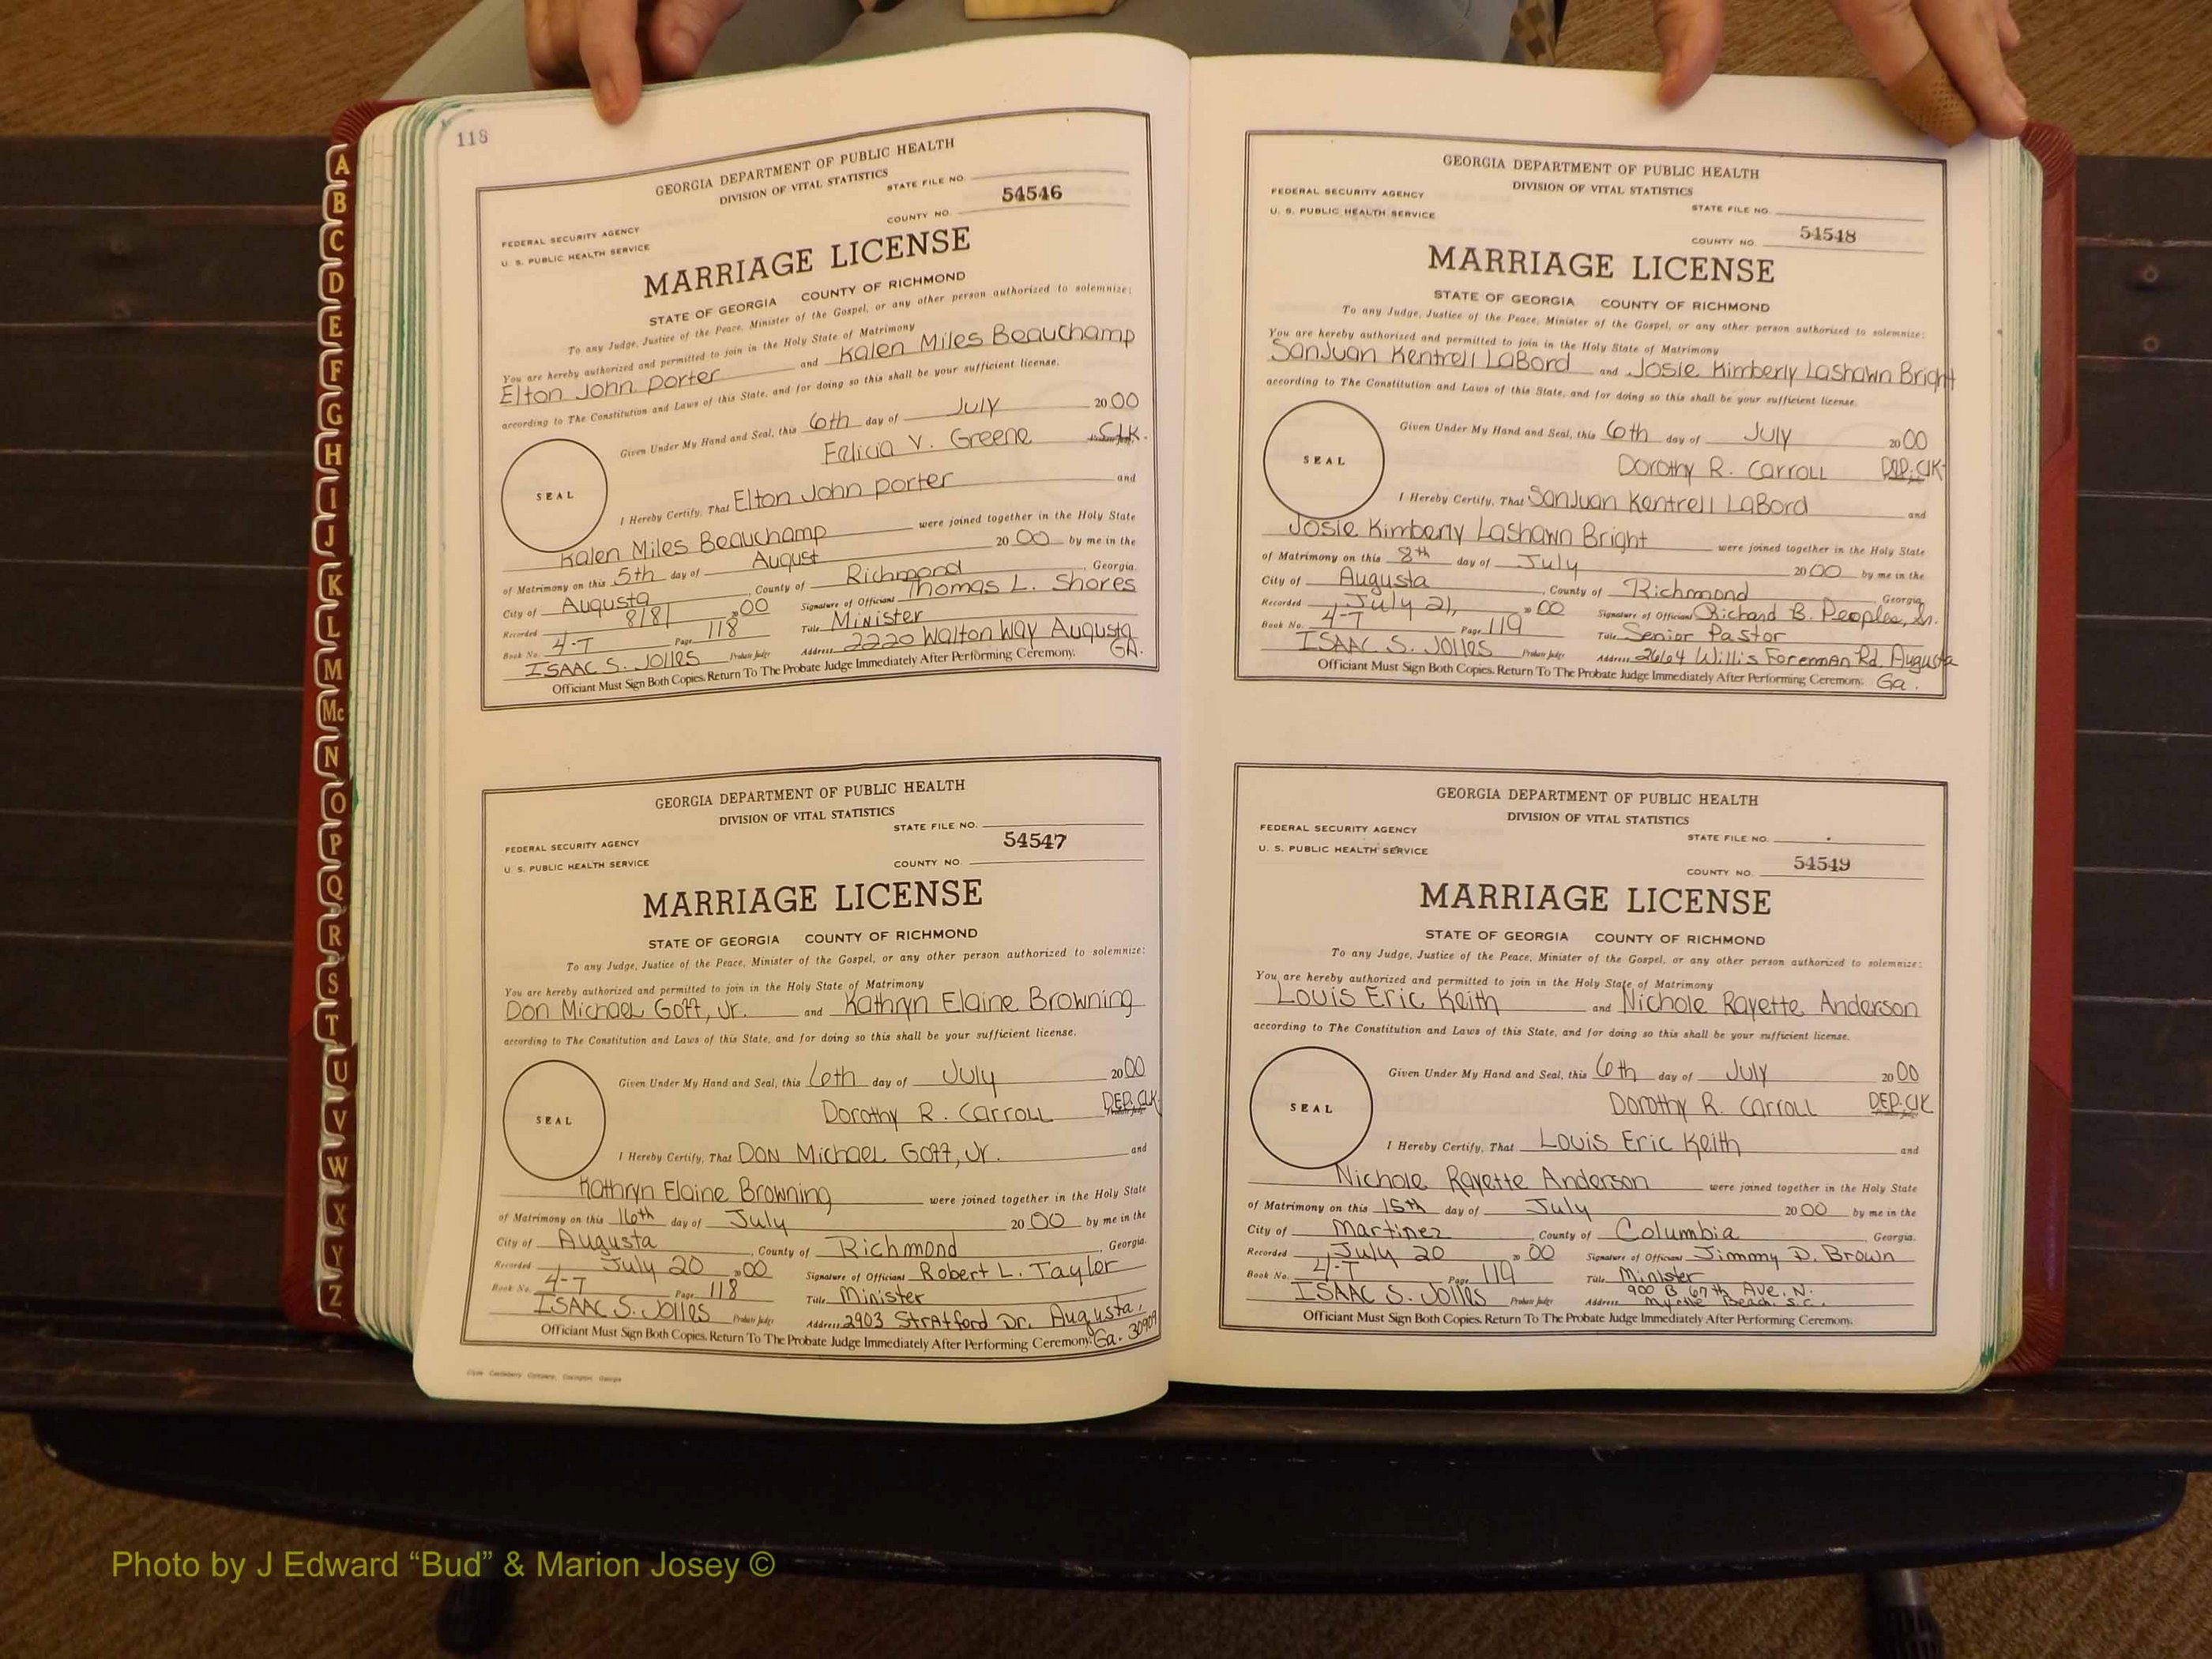 118
A
B
C
D
E
F
G
H
I
J
K
L
M
Mc
N
O
P
Q
R
S
T
U
V
W
X
Y
Z
GEORGIA DEPARTMENT OF PUBLIC HEALTH
DIVISION OF VITAL STATISTICS
STATE FILE NO.
54546
COUNTY NO.
FEDERAL SECURITY AGENCY
U. S. PUBLIC HEALTH SERVICE
MARRIAGE LICENSE
STATE OF GEORGIA COUNTY OF RICHMOND
To any Judge, Justice of the Peace, Minister of the Gospel, or any other person authorized to solemnize:
You are hereby authorized and permitted to join in the Holy State of Matrimony
Elton John Porter and Kalen Miles Beauchamp
according to The Constitution and Laws of this State, and for doing so this shall be your sufficient license.
Given Under My Hand and Seal, this 6th day of July 2000
Felicia V. Greene CLK.
SEAL
I Hereby Certify, That Elton John Porter and
Kalen Miles Beauchamp were joined together in the Holy State
of Matrimony on this 5th day of August 2000 by me in the
City of Augusta, County of Richmond, Georgia.
Recorded 8/8/ 00 Signature of Officiant Thomas L. Shores
Book No. 4-T Page 118 Title Minister
ISAAC S. JOLLES Probate Judge Address 2220 Walton Way Augusta GA.
Officiant Must Sign Both Copies. Return To The Probate Judge Immediately After Performing Ceremony.
GEORGIA DEPARTMENT OF PUBLIC HEALTH
DIVISION OF VITAL STATISTICS
STATE FILE NO.
54547
COUNTY NO.
FEDERAL SECURITY AGENCY
U. S. PUBLIC HEALTH SERVICE
MARRIAGE LICENSE
STATE OF GEORGIA COUNTY OF RICHMOND
To any Judge, Justice of the Peace, Minister of the Gospel, or any other person authorized to solemnize:
You are hereby authorized and permitted to join in the Holy State of Matrimony
Don Michael Goff, Jr. and Kathryn Elaine Browning
according to The Constitution and Laws of this State, and for doing so this shall be your sufficient license.
Given Under My Hand and Seal, this 6th day of July 2000
Dorothy R. Carroll DEP. CLK.
SEAL
I Hereby Certify, That Don Michael Goff, Jr. and
Kathryn Elaine Browning were joined together in the Holy State
of Matrimony on this 16th day of July 2000 by me in the
City of Augusta, County of Richmond, Georgia.
Recorded July 20 00 Signature of Officiant Robert L. Taylor
Book No. 4-T Page 118 Title Minister
ISAAC S. JOLLES Probate Judge Address 2903 Stratford Dr. Augusta, Ga. 30909
Officiant Must Sign Both Copies. Return To The Probate Judge Immediately After Performing Ceremony.
GEORGIA DEPARTMENT OF PUBLIC HEALTH
DIVISION OF VITAL STATISTICS
FEDERAL SECURITY AGENCY
U. S. PUBLIC HEALTH SERVICE
STATE FILE NO.
COUNTY NO. 54548
MARRIAGE LICENSE
STATE OF GEORGIA COUNTY OF RICHMOND
To any Judge, Justice of the Peace, Minister of the Gospel, or any other person authorized to solemnize:
You are hereby authorized and permitted to join in the Holy State of Matrimony
SanJuan Kentrell LaBord and Josie Kimberly Lashawn Bright
according to The Constitution and Laws of this State, and for doing so this shall be your sufficient license.
Given Under My Hand and Seal, this 6th day of July 2000
Dorothy R. Carroll DEP. CLK.
SEAL
I Hereby Certify, That SanJuan Kentrell LaBord and
Josie Kimberly Lashawn Bright were joined together in the Holy State
of Matrimony on this 8th day of July 2000 by me in the
City of Augusta, County of Richmond, Georgia.
Recorded July 21, 00 Signature of Officiant Richard B. Peoples, Sr.
Book No. 4-T Page 119 Title Senior Pastor
ISAAC S. JOLLES Probate Judge Address 2664 Willis Foreman Rd. Augusta Ga.
Officiant Must Sign Both Copies. Return To The Probate Judge Immediately After Performing Ceremony.
GEORGIA DEPARTMENT OF PUBLIC HEALTH
DIVISION OF VITAL STATISTICS
FEDERAL SECURITY AGENCY
U. S. PUBLIC HEALTH SERVICE
STATE FILE NO.
COUNTY NO. 54549
MARRIAGE LICENSE
STATE OF GEORGIA COUNTY OF RICHMOND
To any Judge, Justice of the Peace, Minister of the Gospel, or any other person authorized to solemnize:
You are hereby authorized and permitted to join in the Holy State of Matrimony
Louis Eric Keith and Nichole Rayette Anderson
according to The Constitution and Laws of this State, and for doing so this shall be your sufficient license.
Given Under My Hand and Seal, this 6th day of July 2000
Dorothy R. Carroll DEP. CLK
SEAL
I Hereby Certify, That Louis Eric Keith and
Nichole Rayette Anderson were joined together in the Holy State
of Matrimony on this 15th day of July 2000 by me in the
City of Martinez, County of Columbia, Georgia.
Recorded July 20 00 Signature of Officiant Jimmy D. Brown
Book No. 4-T Page 119 Title Minister
ISAAC S. JOLLES Probate Judge Address 900 B 67th Ave. N. Myrtle Beach, S.C.
Officiant Must Sign Both Copies. Return To The Probate Judge Immediately After Performing Ceremony.
Photo by J Edward “Bud” & Marion Josey ©